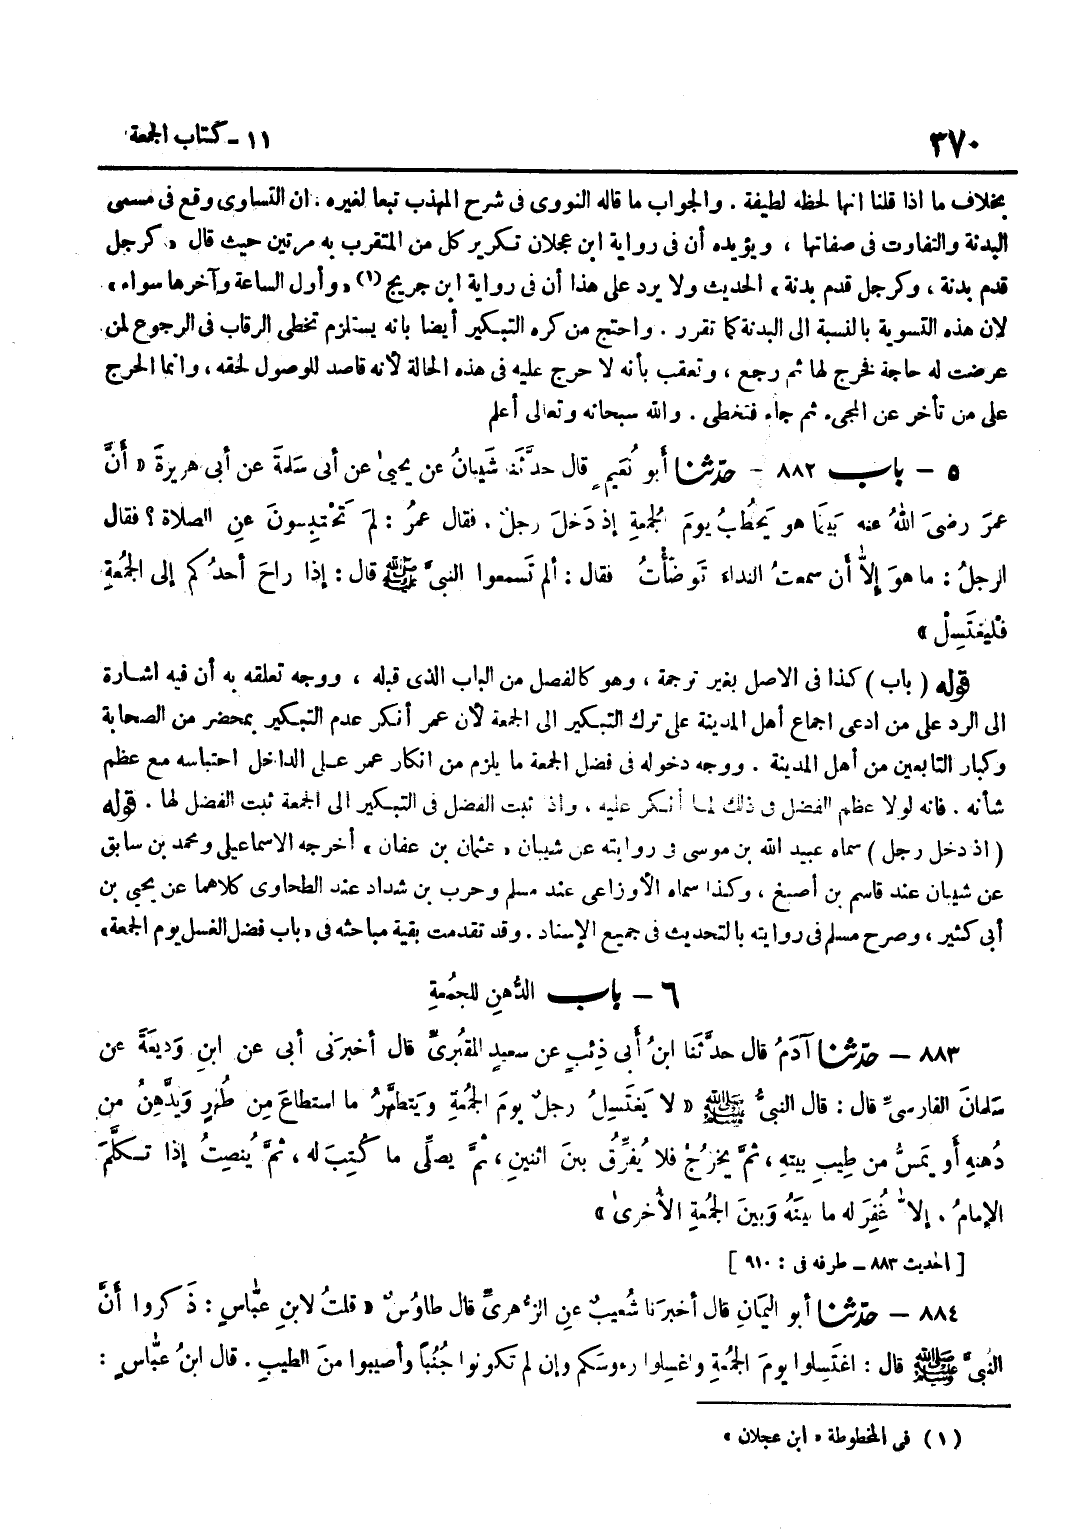 ٣٧٠
١١ - كتاب الجمعة
بخلاف ما اذا قلنا انها لحظه لطيفة . والجواب ما قاله النووى فى شرح المهذب تبعا لغيره . ان التساوى وقع فى مسمى
البدنة والتفاوت فى صفاتها ، ويؤيده أن فى رواية ابن عجلان تكرير كل من المتقرب به مرتين حيث قال « كرجل
قدم بدنة ، وكرجل قدم بدنة » الحديث ولا يرد على هذا أن فى رواية ابن جريج (١) « وأول الساعة وآخرها سواء »
لان هذه التسوية بالنسبة الى البدنة كما تقرر . واحتج من كره التبكير أيضا بانه يستلزم تخطى الرقاب فى الرجوع لمن
عرضت له حاجة فخرج لها ثم رجع ، وتعقب بأنه لا حرج عليه فى هذه الحالة لأنه قاصد للوصول لحقه ، وانما الحرج
على من تأخر عن المجىء ثم جاء فتخطى . والله سبحانه وتعالى أعلم
٥ - باب ٨٨٢ - حدّثنا أبو نُعيمٍ قال حدَّثَنَا شَيبانُ عن يحيىٰ عن أبى سَلمةَ عن أبى هريرةَ « أنَّ
عمرَ رضىَ اللهُ عنه بَينَما هو يَخطُبُ يومَ الجُمعةِ إذ دَخلَ رجلٌ . فقال عمرُ : لِمَ تَحْتَبِسونَ عنِ الصلاة ؟ فقال
الرجلُ : ما هوَ إلاّ أن سمعتُ النداءَ تَوضّأْتُ فقال : ألم تَسمعوا النبىَّ ﷺ قال : إذا راحَ أحدُكم إلى الجُمعةِ
فلْيَغتَسِلْ »
قوله ( باب ) كذا فى الاصل بغير ترجمة ، وهو كالفصل من الباب الذى قبله ، ووجه تعلقه به أن فيه اشارة
الى الرد على من ادعى اجماع أهل المدينة على ترك التبكير الى الجمعة لأن عمر أنكر عدم التبكير بمحضر من الصحابة
وكبار التابعين من أهل المدينة . ووجه دخوله فى فضل الجمعة ما يلزم من انكار عمر على الداخل احتباسه مع عظم
شأنه . فانه لولا عظم الفضل فى ذلك لما أنكر عليه ، واذا ثبت الفضل فى التبكير الى الجمعة ثبت الفضل لها . قوله
( اذ دخل رجل ) سماه عبيد الله بن موسى فى روايته عن شيبان « عثمان بن عفان » أخرجه الاسماعيلى ومحمد بن سابق
عن شيبان عند قاسم بن أصبغ ، وكذا سماه الأوزاعى عند مسلم وحرب بن شداد عند الطحاوى كلاهما عن يحيى بن
أبى كثير ، وصرح مسلم فى روايته بالتحديث فى جميع الإسناد . وقد تقدمت بقية مباحثه فى « باب فضل الغسل يوم الجمعة »
٦ - باب الدُّهنِ للجمُعةِ
٨٨٣ - حدّثنا آدَمُ قال حدَّثَنَا ابنُ أبى ذِئبٍ عن سعيدٍ المَقبُرىِّ قال أخبرَنى أبى عن ابنِ وَديعةَ عن
سَلمانَ الفارسىِّ قال : قال النبىُّ ﷺ « لا يَغتَسِلُ رجلٌ يومَ الجمُعةِ ويَتطهَّرُ ما استطاعَ مِن طُهرٍ ويَدَّهِنُ من
دُهنهِ أو يَمَسُّ من طِيبِ بيتهِ ، ثمَّ يَخرُجُ فلا يُفرِّقُ بينَ اثنينِ ، ثمَّ يصلِّى ما كُتِبَ له ، ثمَّ يُنصِتُ إذا تكلَّمَ
الإمامُ . إلاّ غُفِرَ له ما بينَهُ وَبينَ الجمُعةِ الأُخرىٰ »
[ الحديث ٨٨٣ - طرفه فى : ٩١٠ ]
٨٨٤ - حدّثنا أبو اليَمانِ قال أخبرَنا شُعيبٌ عنِ الزُّهرىِّ قال طاوُسٌ « قلتُ لابنِ عبّاسٍ : ذَكروا أنَّ
النبىَّ ﷺ قال : اغتَسِلوا يومَ الجمُعةِ واغسِلوا رءوسَكم وإن لم تكونوا جُنُباً وأصيبوا منَ الطيبِ . قال ابنُ عبّاسٍ :
(١) فى المخطوطة « ابن عجلان »